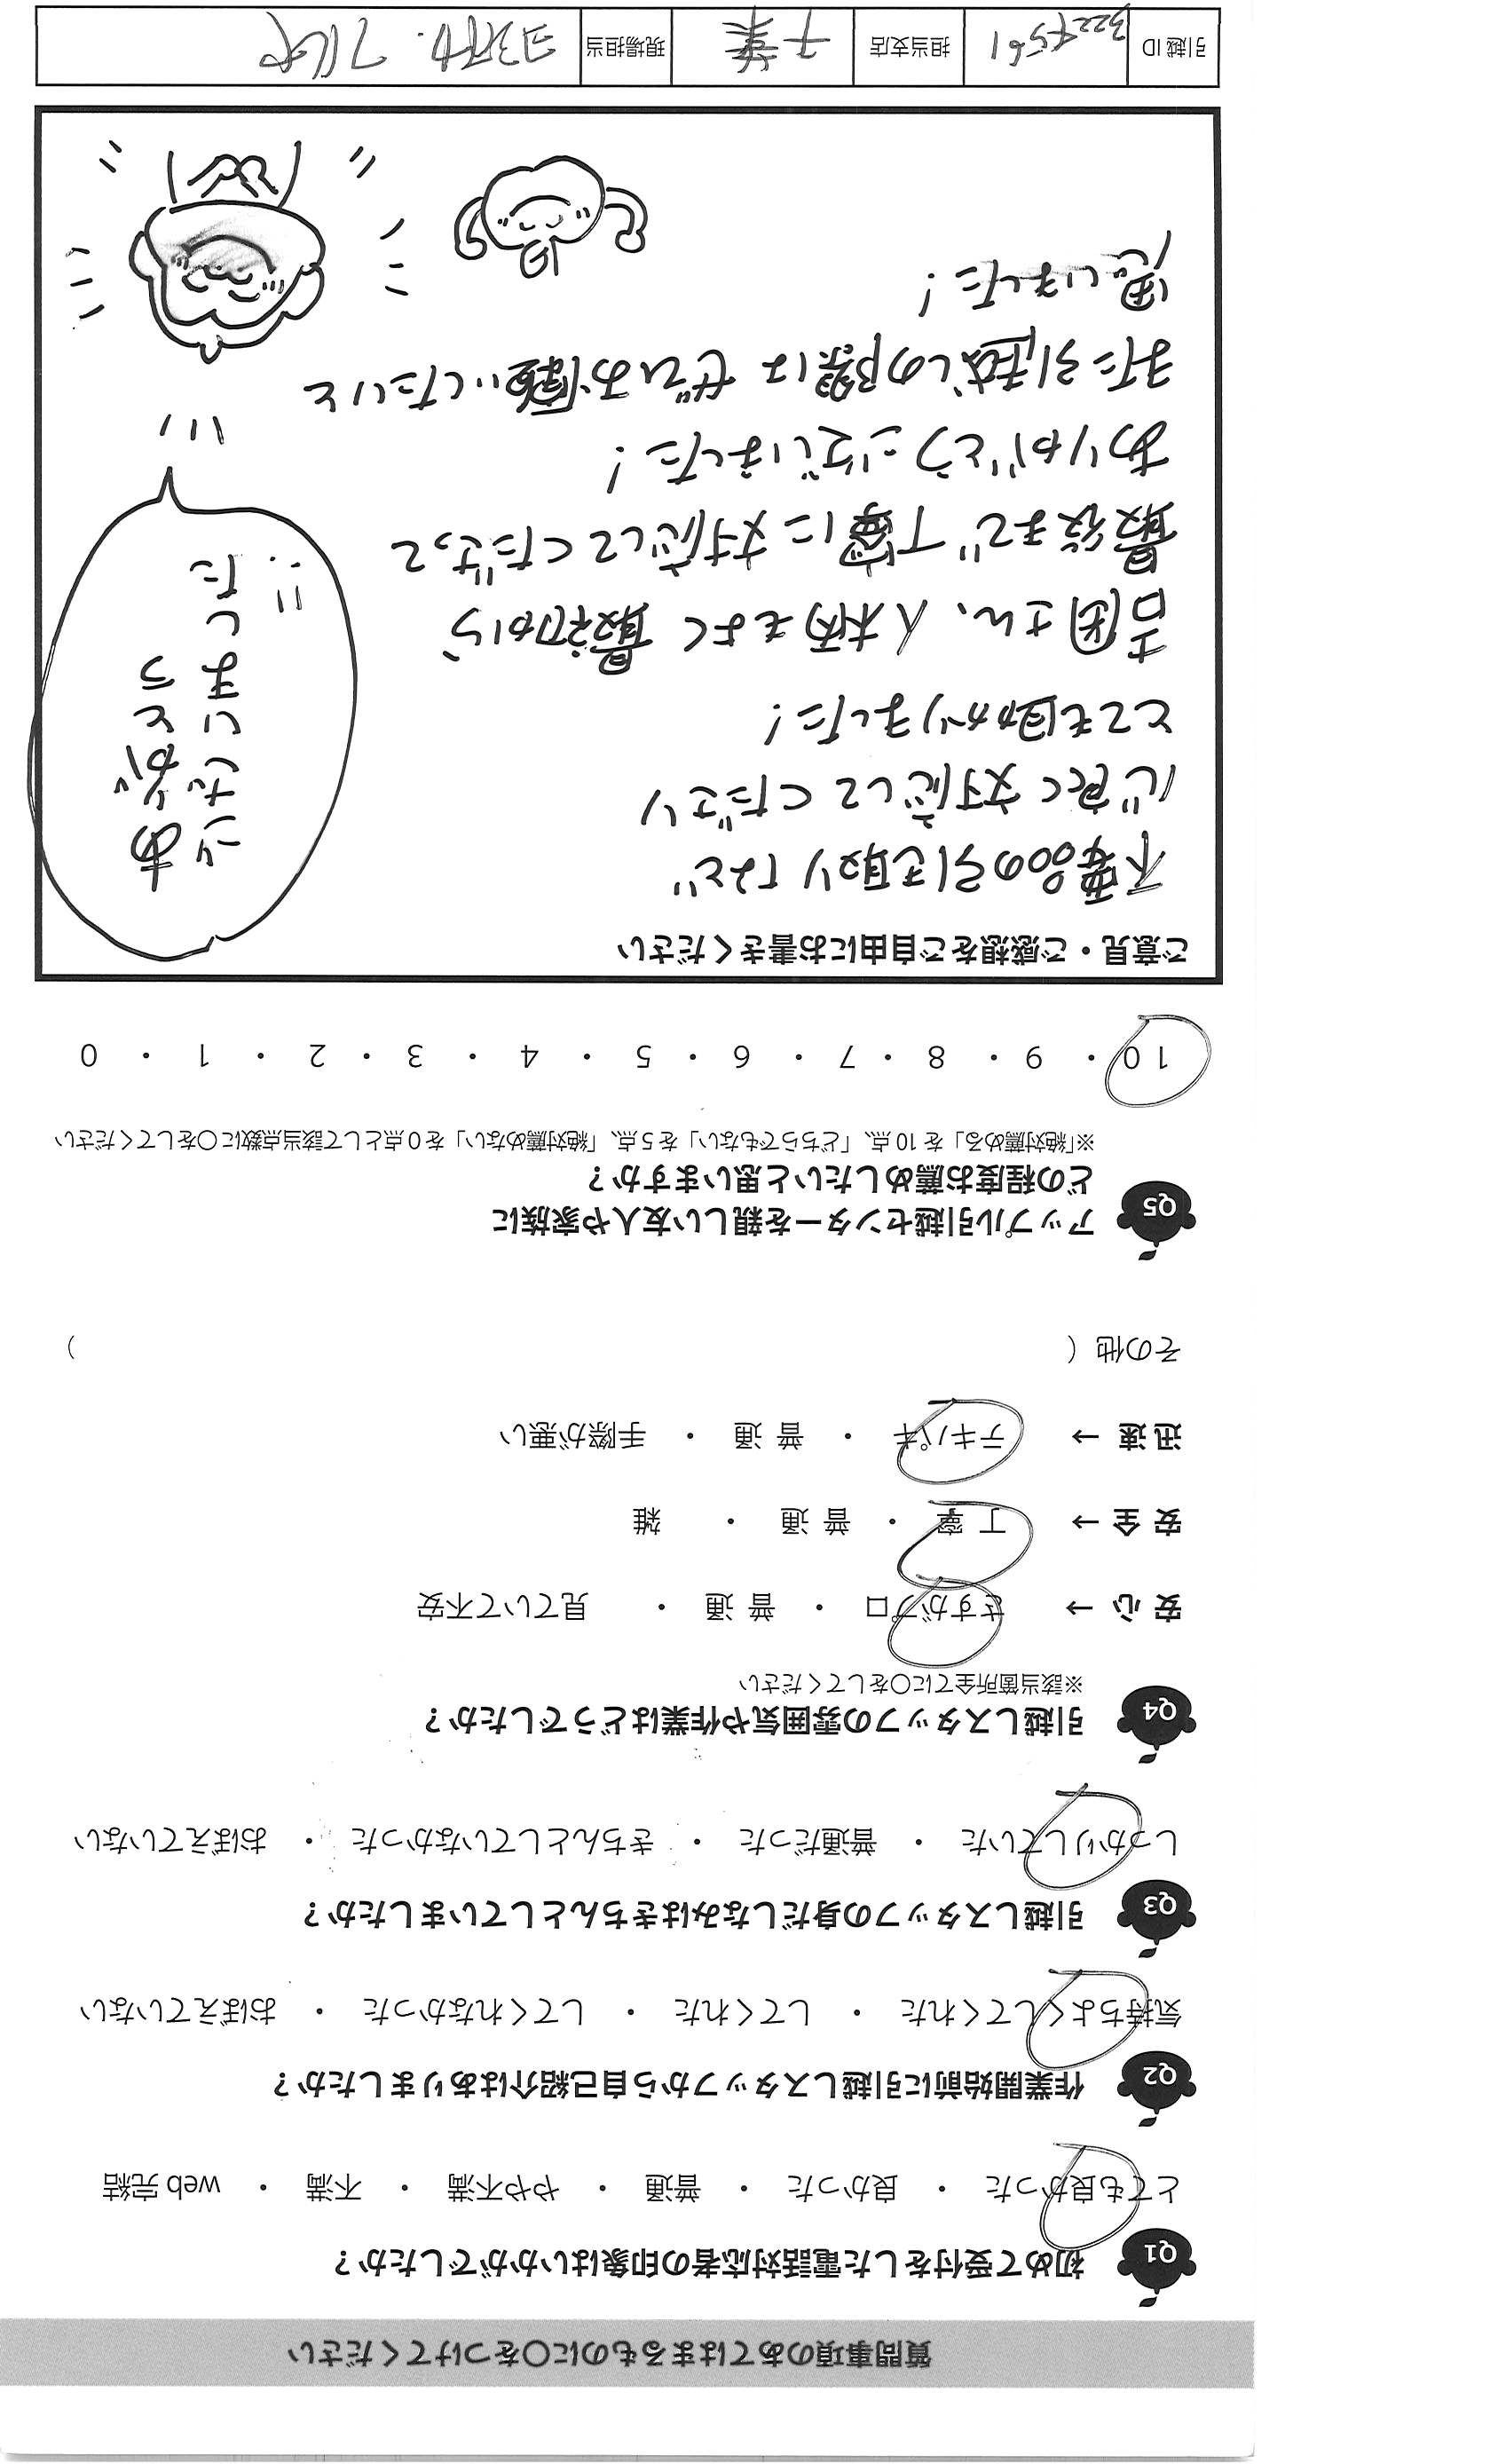 質問事項のあてはまるものに〇をつけてください
Q1 初めて受付をした電話対応者の印象はいかがでしたか？
とても良かった ・ 良かった ・ 普通 ・ やや不満 ・ 不満 ・ web 完結
Q2 作業開始前に引越しスタッフから自己紹介はありましたか？
気持ちよくしてくれた ・ してくれた ・ してくれなかった ・ おぼえていない
Q3 引越しスタッフの身だしなみはきちんとしていましたか？
しっかりしていた ・ 普通だった ・ きちんとしていなかった ・ おぼえていない
Q4 引越しスタッフの雰囲気や作業はどうでしたか？
※該当箇所全てに〇をしてください
安心 → さすがプロ ・ 普通 ・ 見ていて不安
安全 → 丁寧 ・ 普通 ・ 雑
迅速 → テキパキ ・ 普通 ・ 手際が悪い
その他（ ）
Q5 アップル引越センターを親しい友人や家族に
どの程度お薦めしたいと思いますか？
※「絶対薦める」を10点、「どちらでもない」を5点、「絶対薦めない」を0点として該当点数に〇をしてください
10 ・ 9 ・ 8 ・ 7 ・ 6 ・ 5 ・ 4 ・ 3 ・ 2 ・ 1 ・ 0
ご意見・ご感想をご自由にお書きください
不要品の引き取りなど
心良く対応してくださり
とても助かりました！
吉岡さん、人柄もよく最初から
最後まで丁寧に対応してくださって
ありがとうございました！
また引越しの際はぜひお願いしたいと
思いました！
ありがとう
ございました
引越 ID 3224561 担当支店 千葉 現場担当